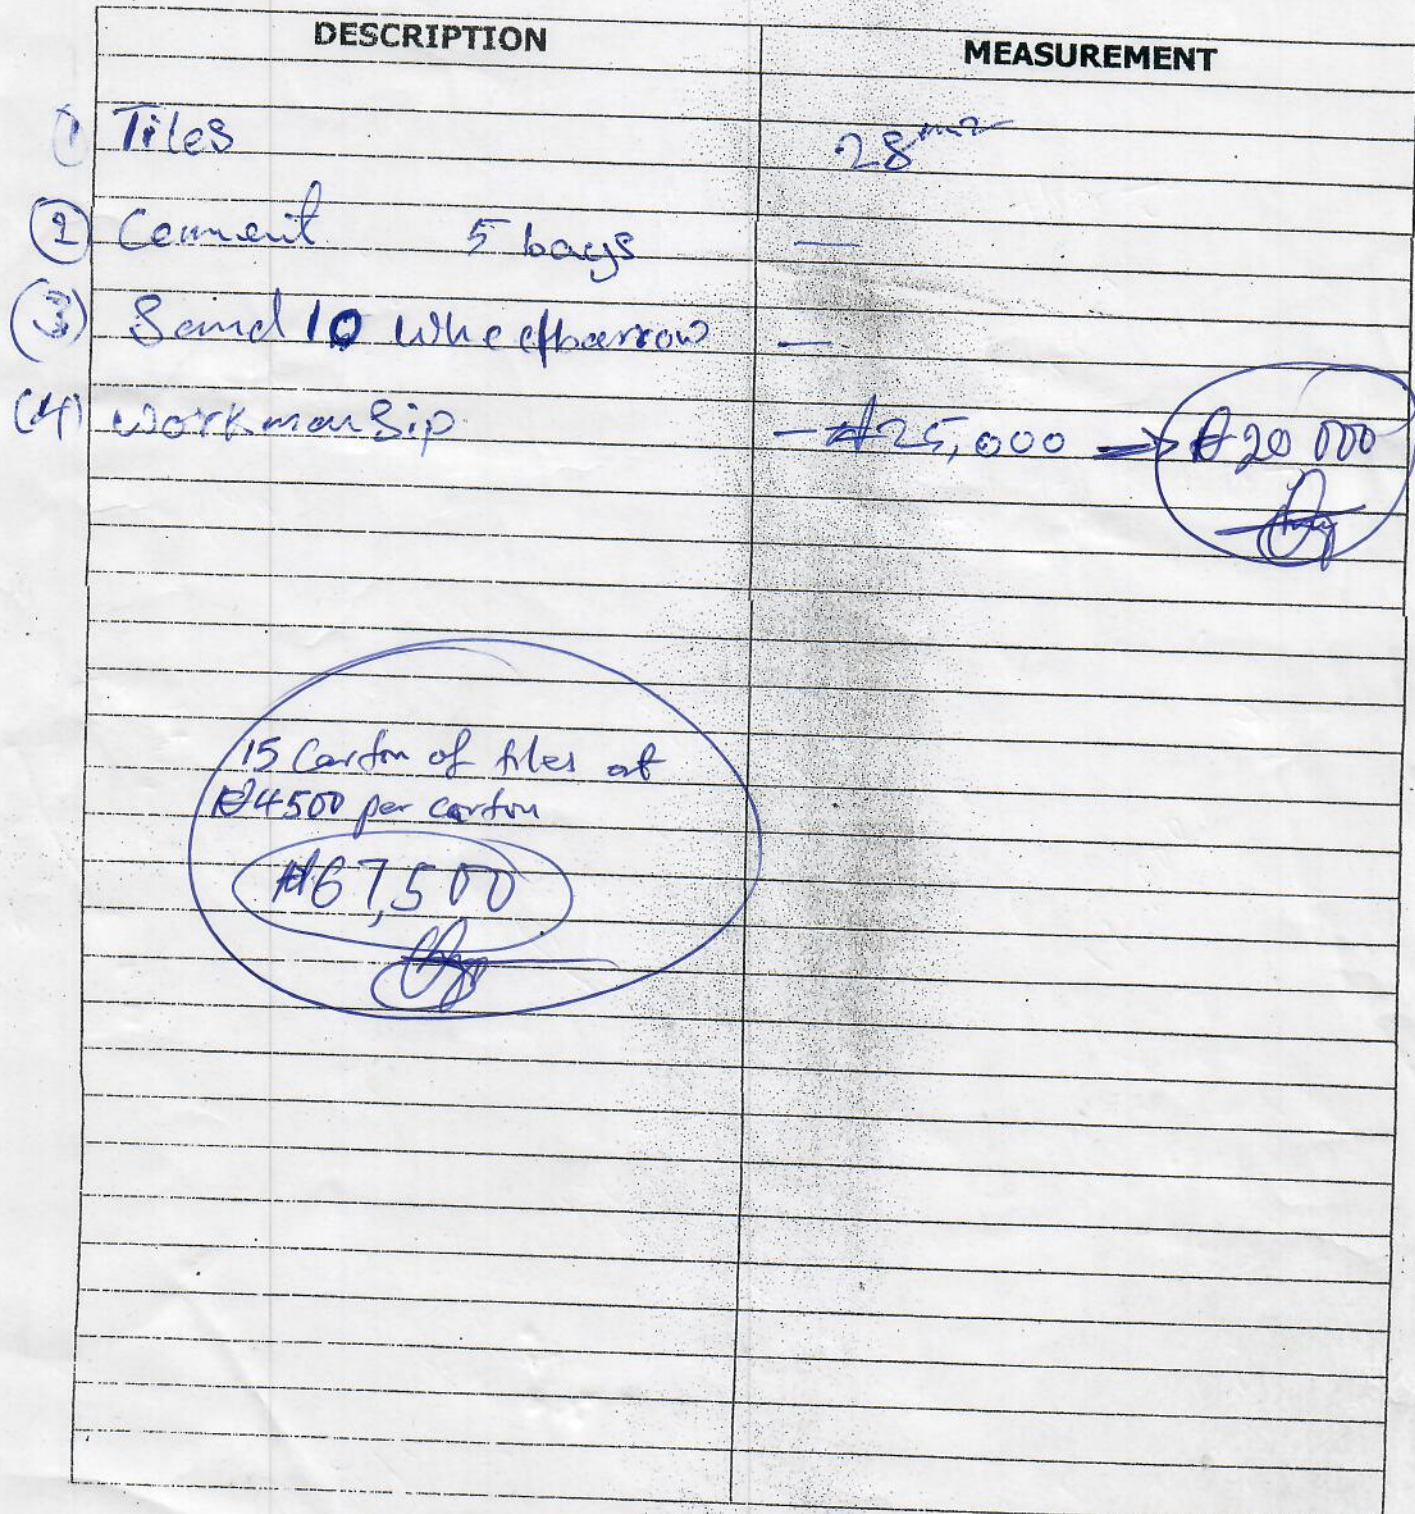 DESCRIPTION MEASUREMENT
1 Tiles 28m2
2 Cement 5 bags —
(3) Sand 10 wheelbarrow —
(4) workmanSip - ₦25,000 → ₦20 000
15 Carton of tiles at
₦4500 per carton
₦67,500